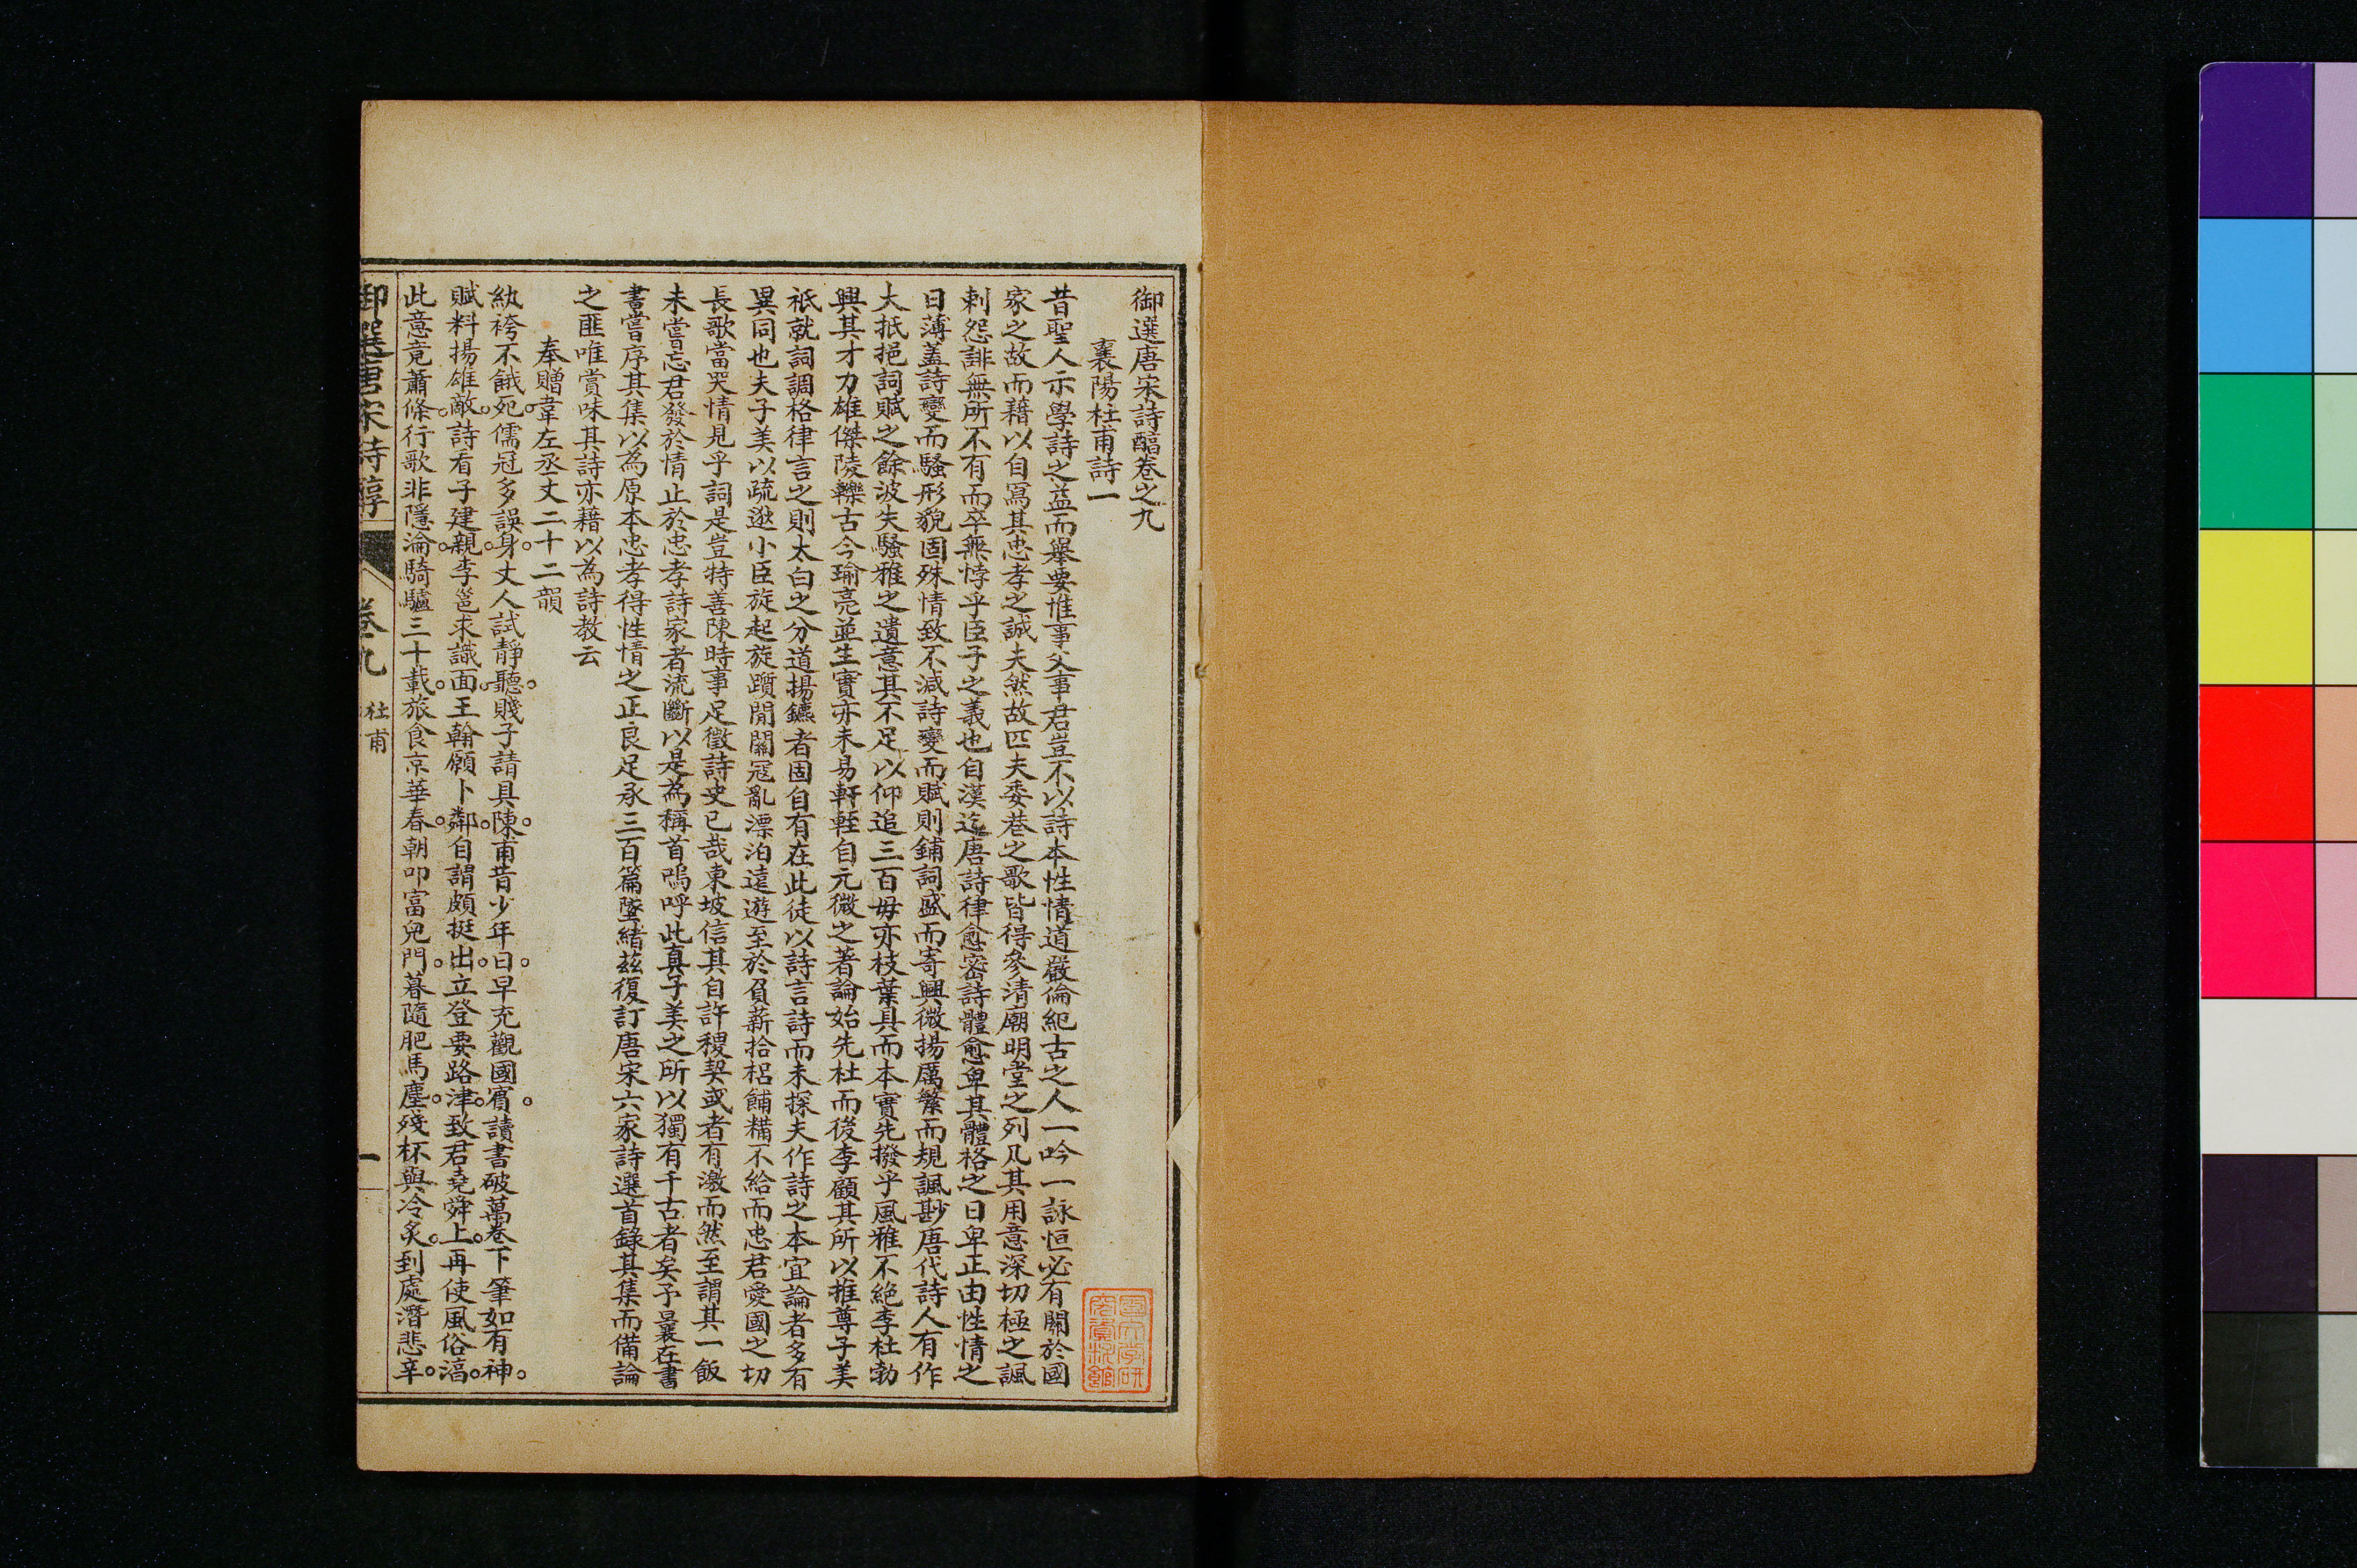 御選唐宋詩醇卷之九
襄陽杜甫詩一
昔聖人示學詩之益而舉要惟事父事君豈不以詩本性情道嚴倫紀古之人一吟一詠恒必有關於國
家之故而藉以自寫其忠孝之誠夫然故匹夫委巷之歌皆得參清廟明堂之列凡其用意深切極之諷
刺怨誹無所不有而卒無悖乎臣子之義也自漢迄唐詩律愈密詩體愈卑其體格之日卑正由性情之
日薄蓋詩變而騷形貌固殊情致不減詩變而賦則鋪詞盛而寄興微揚厲繁而規諷尠唐代詩人有作
大抵挹詞賦之餘波失騷雅之遺意其不足以仰追三百毋亦枝葉具而本實先撥乎風雅不絕李杜勃
興其才力雄傑陵轢古今瑜亮並生實亦未易軒輊自元微之著論始先杜而後李顧其所以推尊子美
祇就詞調格律言之則太白之分道揚鑣者固自有在此徒以詩言詩而未探夫作詩之本宜論者多有
異同也夫子美以疏逖小臣旋起旋躓間關寇亂漂泊遠遊至於負薪拾梠餔糒不給而忠君愛國之切
長歌當哭情見乎詞是豈特善陳時事足徵詩史已哉東坡信其自許稷契或者有激而然至謂其一飯
未嘗忘君發於情止於忠孝詩家者流斷以是為稱首嗚呼此真子美之所以獨有千古者矣予曩在書
書嘗序其集以為原本忠孝得性情之正良足承三百篇墜緒茲復訂唐宋六家詩選首錄其集而備論
之匪唯賞味其詩亦藉以為詩教云
奉贈韋左丞丈二十二韻
紈袴不餓死儒冠多誤身丈人試靜聽賤子請具陳甫昔少年日早充觀國賓讀書破萬卷下筆如有神
賦料揚雄敵詩看子建親李邕求識面王翰願卜鄰自謂頗挺出立登要路津致君堯舜上再使風俗湻
此意竟蕭條行歌非隱淪騎驢三十載旅食京華春朝叩富兒門暮隨肥馬塵殘杯與冷炙到處潛悲辛
御選唐宋詩醇
卷九
杜甫
一
國文學研
究資料館